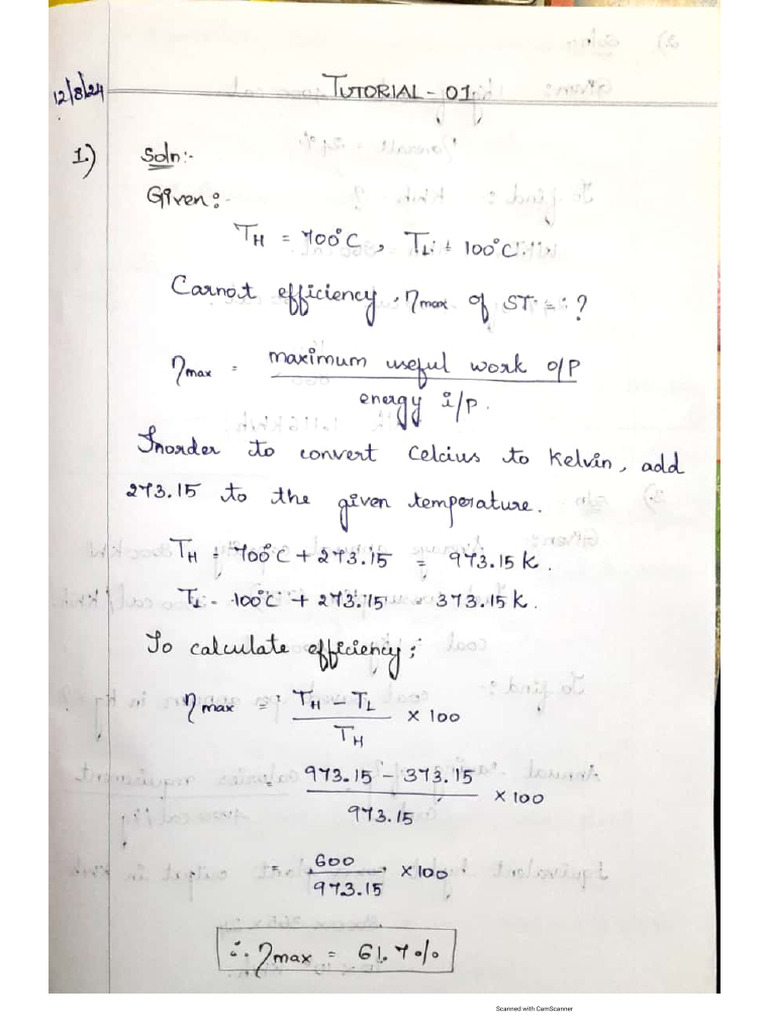 12/8/24
TUTORIAL - 01.
1.) Soln:-
Given:-
T_H = 700°C, T_L = 100°C.
Carnot efficiency, η_max of ST = ?
η_max = maximum useful work o/p / energy i/p.
Inorder to convert Celcius to Kelvin, add
273.15 to the given temperature.
T_H = 700°C + 273.15 = 973.15 K.
T_L = 100°C + 273.15 = 373.15 K.
To calculate efficiency;
η_max = T_H - T_L / T_H × 100
= 973.15 - 373.15 / 973.15 × 100
= 600 / 973.15 × 100
∴ η_max = 61.7%
Scanned with CamScanner